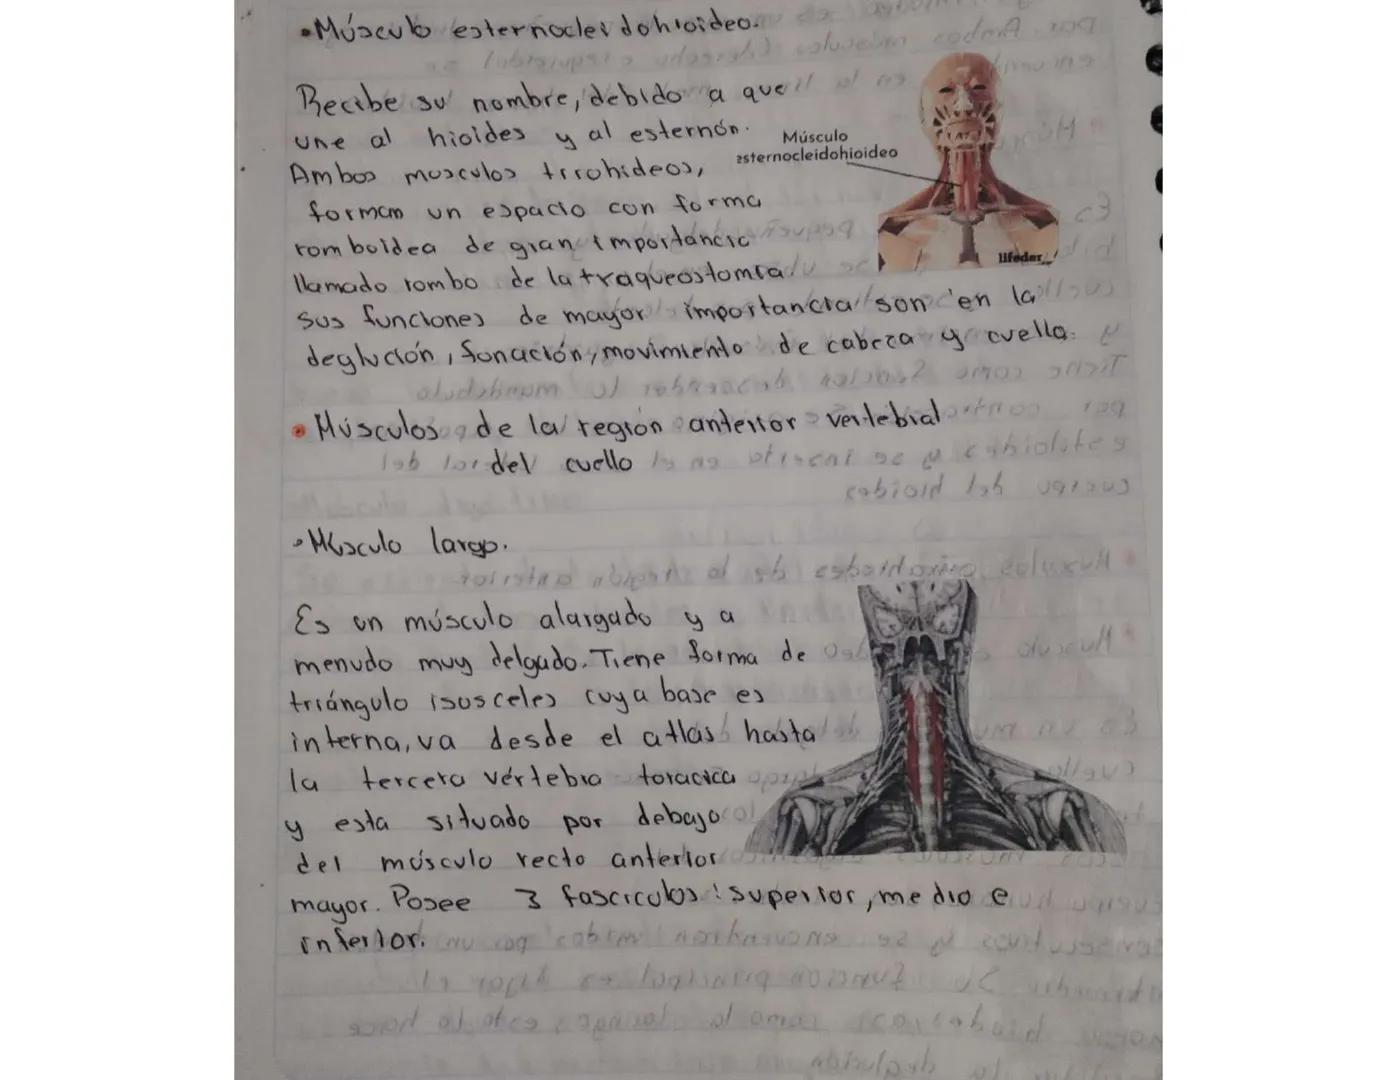 •Músculo esternocleidohioideo.
Recibe su nombre, debido a que
une al hioides y al esternón.
Músculo
esternocleidohioideo
Ambos musculos tirohideos,
forman un espacio con forma
romboidea de gran importancia
lifeder
llamado rombo de la traqueostomía
sus funciones de mayor importancia son en la
deglución, fonación, movimiento de cabeza y cuello.
• Músculos de la región anterior vertebral
del cuello
• Músculo largo.
Es un músculo alargado y a
menudo muy delgado. Tiene forma de
triángulo isosceles cuya base es
interna, va desde el atlas hasta
la tercera vértebra toracica
y esta situado por debajo
del músculo recto anterior
mayor. Posee 3 fascículos: superior, medio e
inferior.